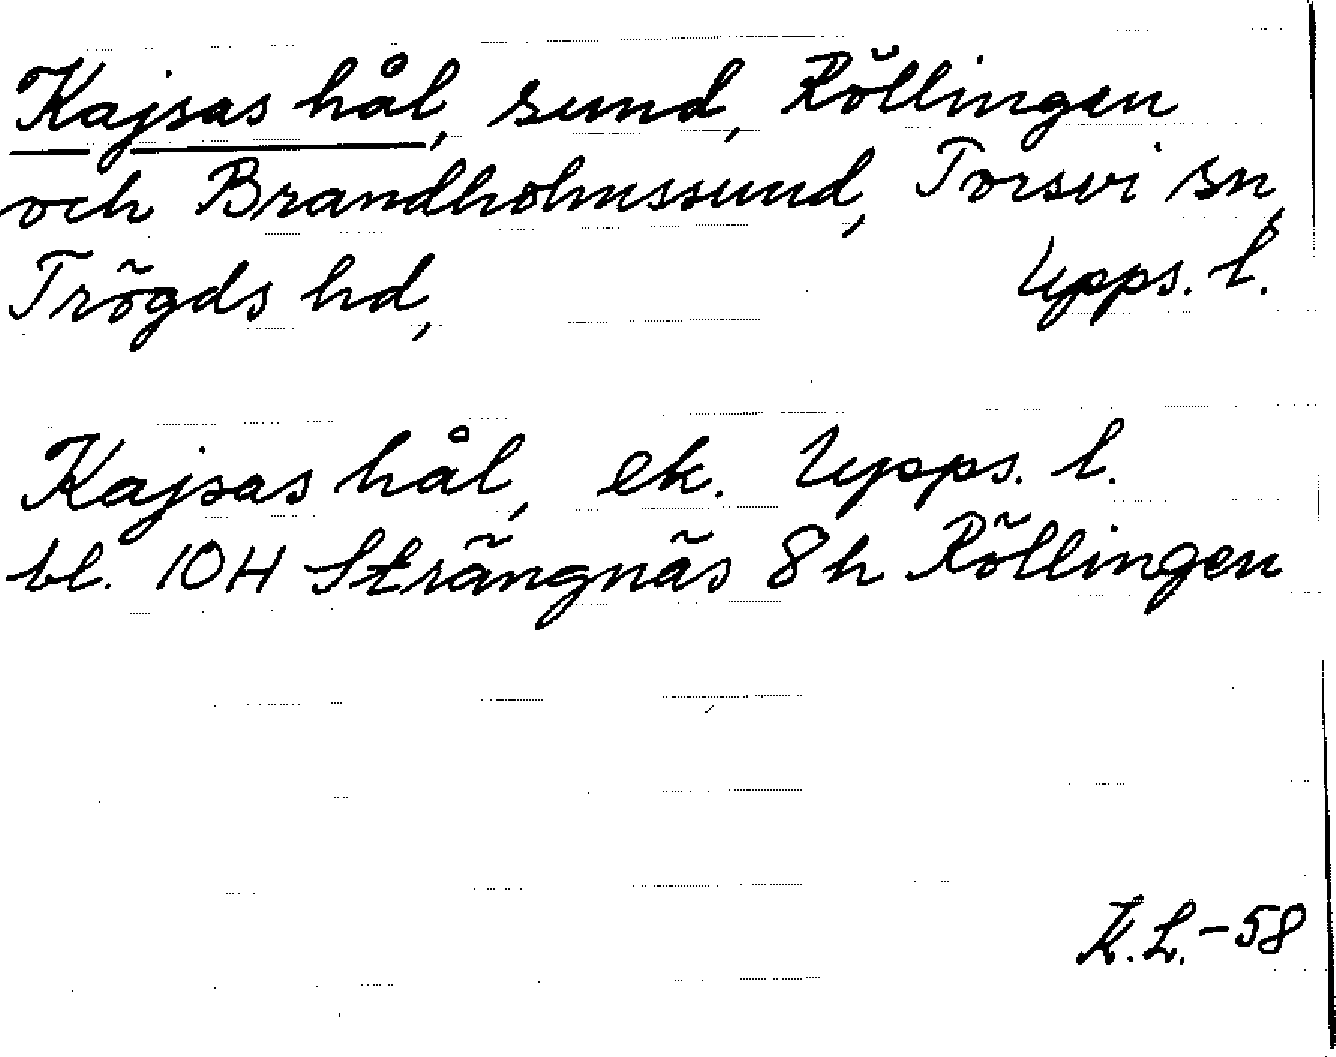 Kajsas hål, sund, Röllingen
och Brandholmssund, Torsvi sn,
Trögds hd, Upps. l.
Kajsas hål, ek. Upps. l.
bl. 10H Strängnäs 8h Röllingen
K.L.-58